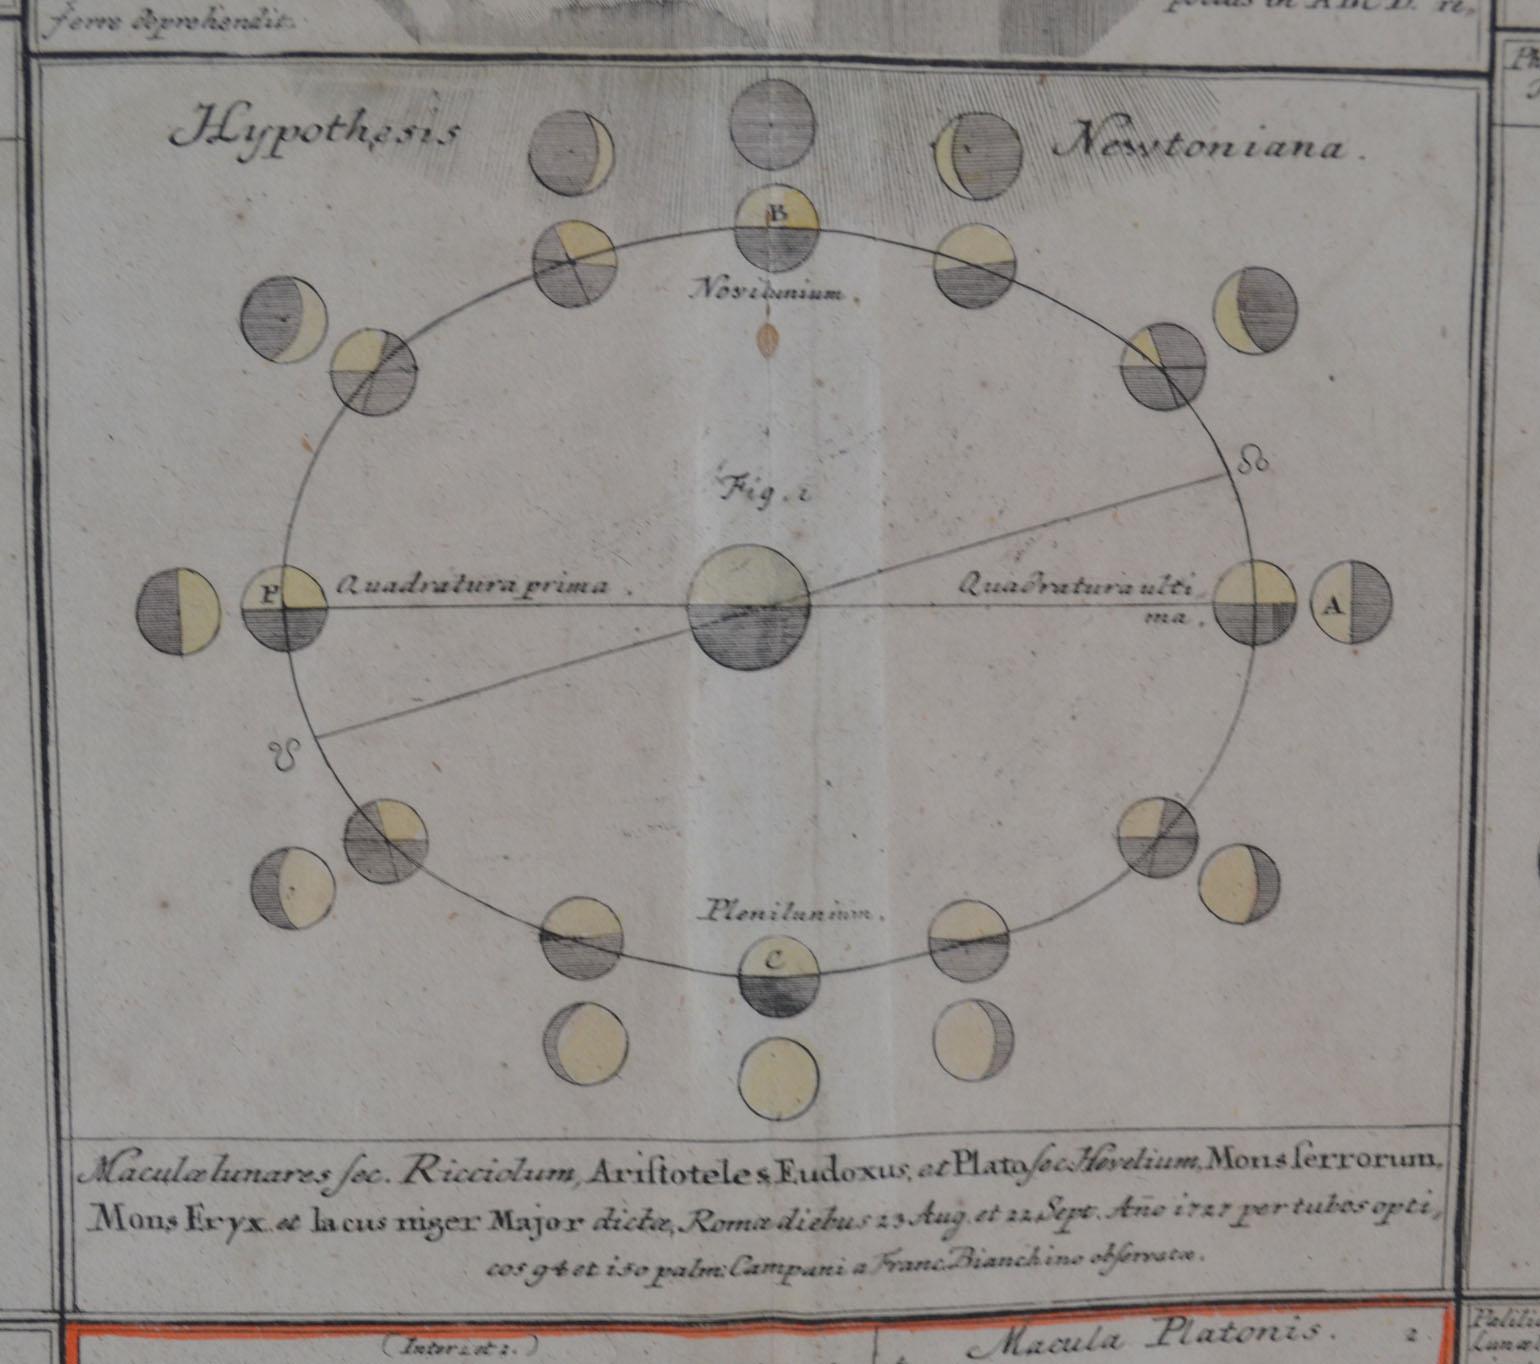 ferre deprehendit.
in ABCD. re,
Hypothesis Newtoniana.
B
Novilunium.
Fig. 1
☊
P Quadratura prima. Quadratura ulti
ma. A
☋
Plenilunium.
C
Maculæ lunares ſec. Ricciolum, Ariſtoteles, Eudoxus, et Plato ſec. Hevelium, Mons ſerrorum,
Mons Eryx et lacus niger Major dictæ, Romæ diebus 23 Aug. et 22 Sept. Año 1727 per tubos opti,
cos 94 et 150 palm: Campani a Franc. Bianchino obſervatæ.
(Inter 1. et 2.)
Macula Platonis. 2
Lunæ